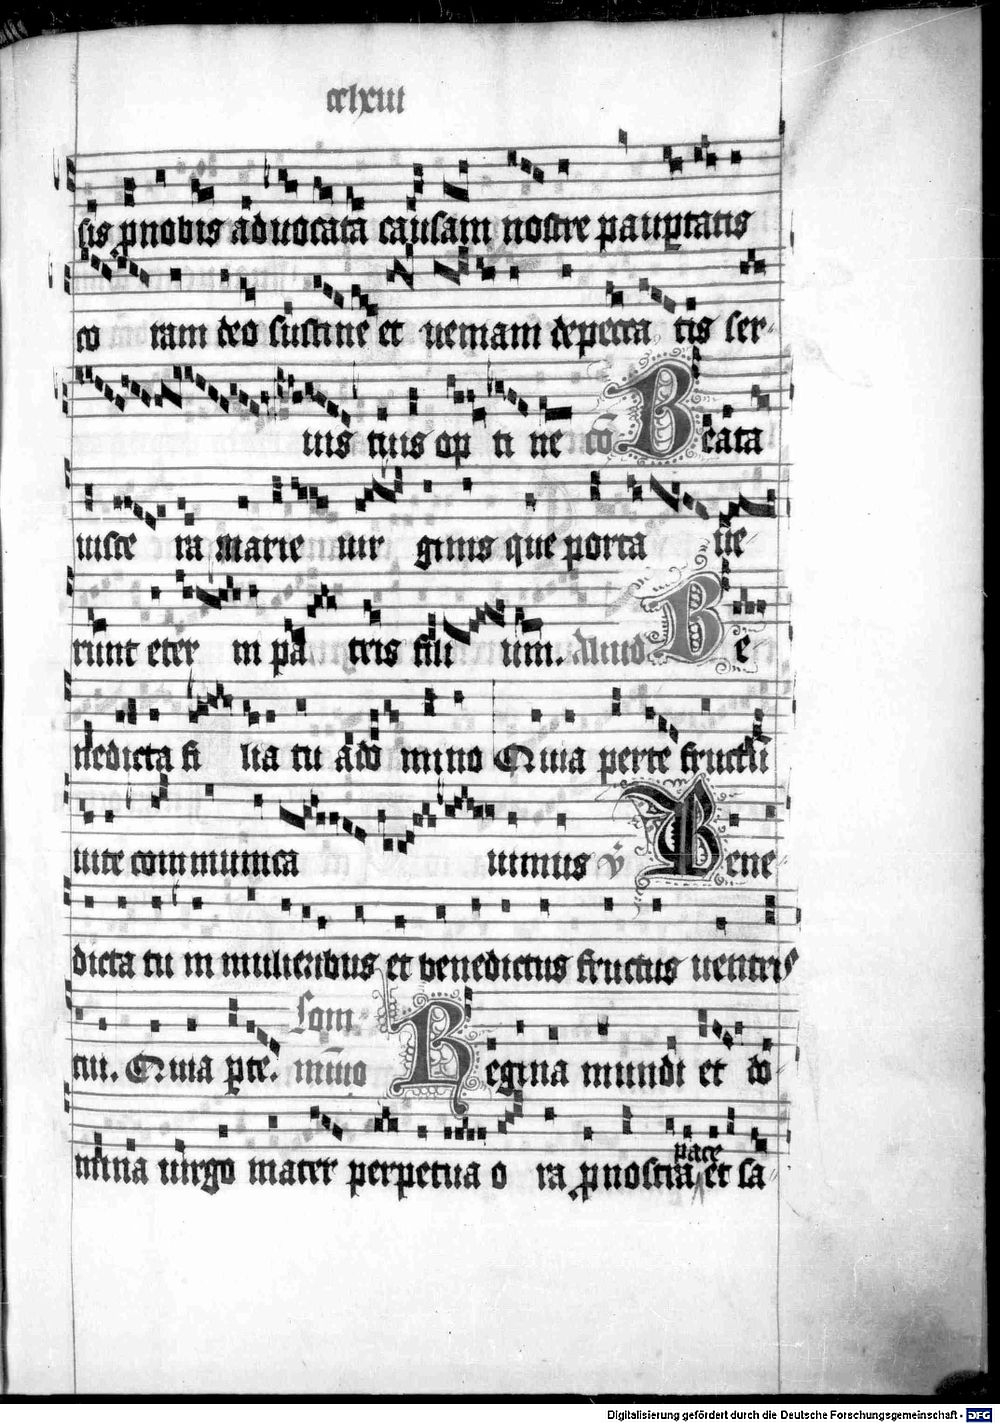 cclxiii
sis pnobis aduocata causam nostre pauptatis
co ram deo sustine et ueniam depecca tis ser-
uis tuis op ti ne cō Beata
uisce ra marie uir ginis que porta ue-
runt eter ni pa tris fili um. Be
nedicta fi lia tu a do mino Quia perte fructū
uite communica uimus ℣ Bene-
dicta tu in mulieribus et benedictus fructus uentris
tui. Quia pte. Regina mundi et do
mina uirgo mater perpetua o ra pnostra pace et sa-
Digitalisierung gefördert durch die Deutsche Forschungsgemeinschaft - DFG